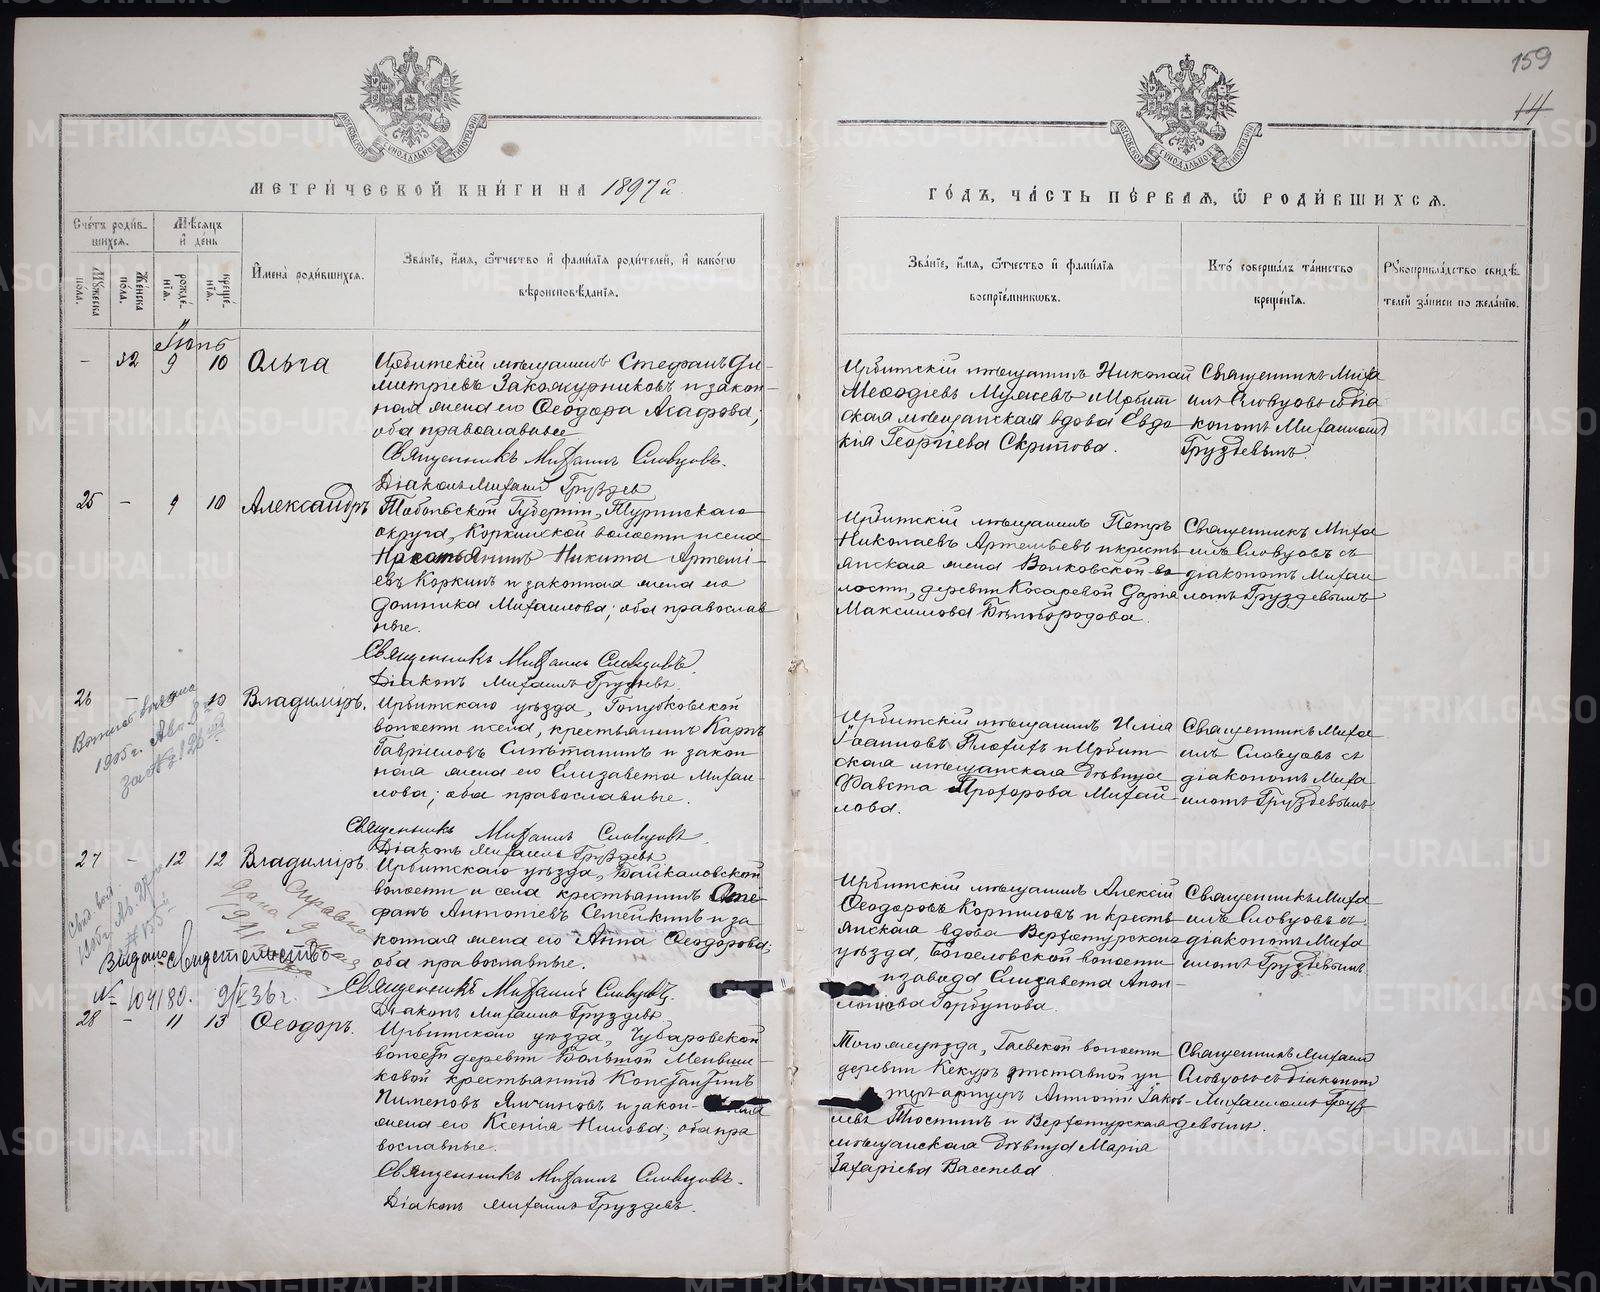 159
14
МОСКОВСКОЙ СѴНОДАЛЬНОЙ ТИПОГРАФІИ
МОСКОВСКОЙ СѴНОДАЛЬНОЙ ТИПОГРАФІИ
МЕТРИЧЕСКОЙ КНИГИ НА 1897й
ГОДЪ, ЧАСТЬ ПЕРВАЯ, Ѿ РОДИВШИХСЯ.
Счетъ родив-
шихся.
Мѣсяцъ
и день
Мужеска пола.
Женска пола.
рожде-нія.
креще-нія.
Имена родившихся.
Званіе, имя, отчество и фамилія родителей, и какогѡ
вѣроисповѣданія.
Званіе, имя, отчество и фамилія
воспріемниковъ.
Кто совершалъ таинство
крещенія.
Рукоприкладство свидѣ-
телей записи по желанію.
Іюнь
- 32 9 10 Ольга
Ирбитскій мѣщанинъ Стефанъ Ди-
митріевъ Закожурниковъ и закон-
ная жена его Ѳеодора Агафова;
оба православные
Священникъ Михаилъ Словцовъ.
Діаконъ Михаилъ Груздевъ
Ирбитскій мѣщанинъ Николай
Меѳодіевъ и Ирбит
ская мѣщанская вдова Евдо
кія Георгіева Скрипова.
Священникъ Миха
илъ Словцовъ съ діа
кономъ Михаиломъ
Груздевымъ.
25 - 9 10 Александръ
Тобольской Губерніи, Туринскаго
округа, Коркинской волости и села
крестьянинъ Никита Артемі-
евъ Коркинъ и законная жена его
Домника Михаилова; оба православ
ные.
Священникъ Михаилъ Словцовъ.
Діаконъ Михаилъ Груздевъ.
Ирбитскій мѣщанинъ Петръ
Николаевъ Артемьевъ и кресть
янская жена Волковской во
лости, деревни Косаревой Дарія
Максимова Бѣлобородова.
Священникъ Миха
илъ Словцовъ съ
діакономъ Михаи
ломъ Груздевымъ
26 - 10 Владиміръ.
Ирбитскаго уѣзда, Голубковской
волости и села, крестьянинъ Карпъ
Гавриловъ Смѣтанинъ и закон
ная жена его Елизавета Михаи-
лова; оба православные.
Священникъ Михаилъ Словцовъ
Діаконъ Михаилъ Груздевъ
Ирбитскій мѣщанинъ Илія
Іоанновъ и Ирбит-
ская мѣщанская дѣвица
Фавста Прохорова Михай
лова.
Священникъ Миха
илъ Словцовъ съ
діакономъ Миха
иломъ Груздевымъ
1905 г.
27 - 12 12 Владиміръ.
Ирбитскаго уѣзда, Байкаловской
волости и села крестьянинъ Сте-
фанъ Антоновъ Семейкинъ и за
конная жена его Анна Ѳеодорова;
оба православные.
Священникъ Михаилъ Словцовъ.
Діаконъ Михаилъ Груздевъ
Ирбитскій мѣщанинъ Алексій
Ѳеодоровъ Корниловъ и кресть
янская вдова Верхотурскаго
уѣзда, Богословской волости
и завода Елизавета Апол-
лонова Горбунова.
Священникъ Миха
илъ Словцовъ съ
діакономъ Миха
иломъ Груздевымъ
Справка
дана 9
1911
Выдано свидетельство
№ 104180. 9/V 36 г.
28 - 11 13 Ѳеодоръ.
Ирбитскаго уѣзда, Чубаровской
волости деревни Большой Менши-
ковой крестьянинъ Константинъ
Пименовъ Ямчиновъ и закон-ная
жена его Ксенія Нилова; оба пра
вославные.
Священникъ Михаилъ Словцовъ.
Діаконъ Михаилъ Груздевъ.
Того же уѣзда, Гаевской волости
деревни Кекуръ отставной ун
теръ Антоній Іаков-
левъ и Верхотурская
мѣщанская дѣвица Марія
Захаріева Васенева
Священникъ Михаилъ
Словцовъ съ діаконом
Михаиломъ Груз
девымъ.